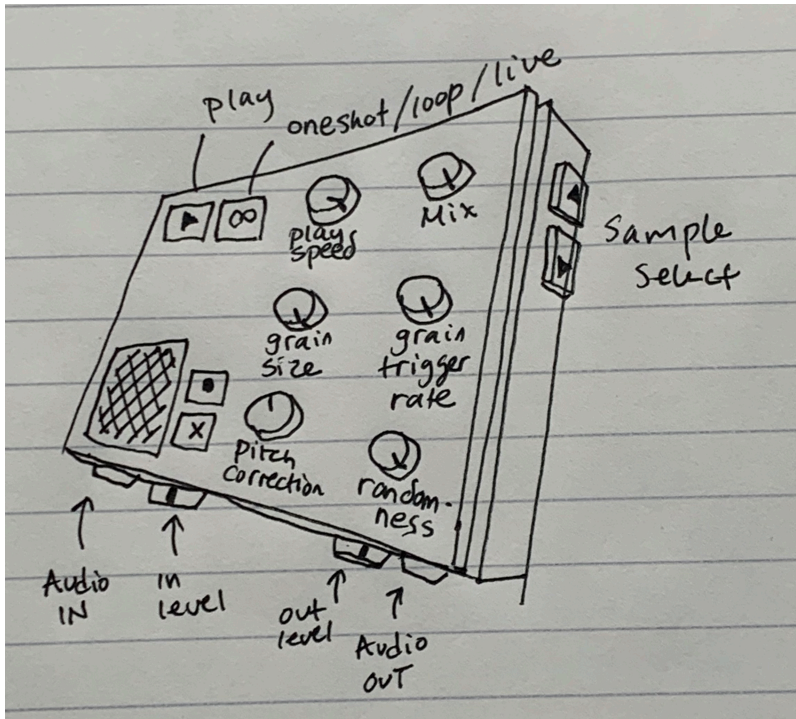 play
oneshot/loop/live
∞
play
speed
Mix
Sample
Select
grain
size
grain
trigger
rate
x
Pitch
correction
random-
ness
Audio
IN
in
level
out
level
Audio
OUT